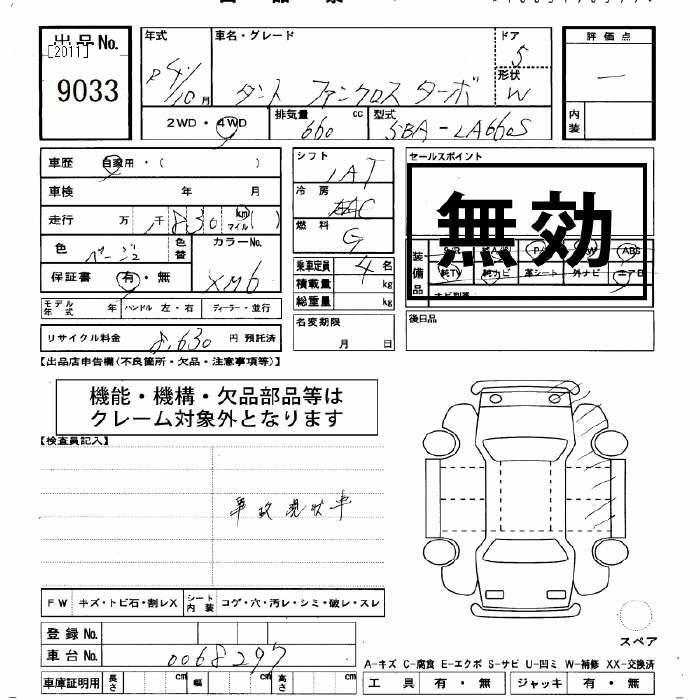 出品No.
[2011]
9033
年式
R4/10月
車名・グレード
タント ファンクロス ターボ
ドア
5
形状
W
評価点
一
内装
2WD・4WD
排気量
660 cc
型式
5BA-LA660S
車歴 自家用・(        )
車検 年 月
走行 万 千 830 km マイル ( )
色 ベージュ 色替 カラーNo. XM6
保証書 有・無
モデル年式 年 ハンドル 左・右 ディーラー・並行
リサイクル料金 8,630 円 預託済
シフト
IAT
冷房
AAC
燃料
G
乗車定員 4 名
積載量 kg
総重量 kg
名変期限
月 日
セールスポイント
無効
装備品
S/R 純A/W P/S P/W ABS
純TV 純ナビ 革シート 外ナビ エアB
後日品
【出品店申告欄(不良箇所・欠品・注意事項等)】
機能・機構・欠品部品等は
クレーム対象外となります
【検査員記入】
事故現状車
FW キズ・トビ石・割レX シート内装 コゲ・穴・汚レ・シミ・破レ・スレ
登録No.
車台No. 0068297
車庫証明用 長さ cm 幅 cm 高さ cm
スペア
A-キズ C-腐食 E-エクボ S-サビ U-凹ミ W-補修 XX-交換済
工具 有・無 ジャッキ 有・無